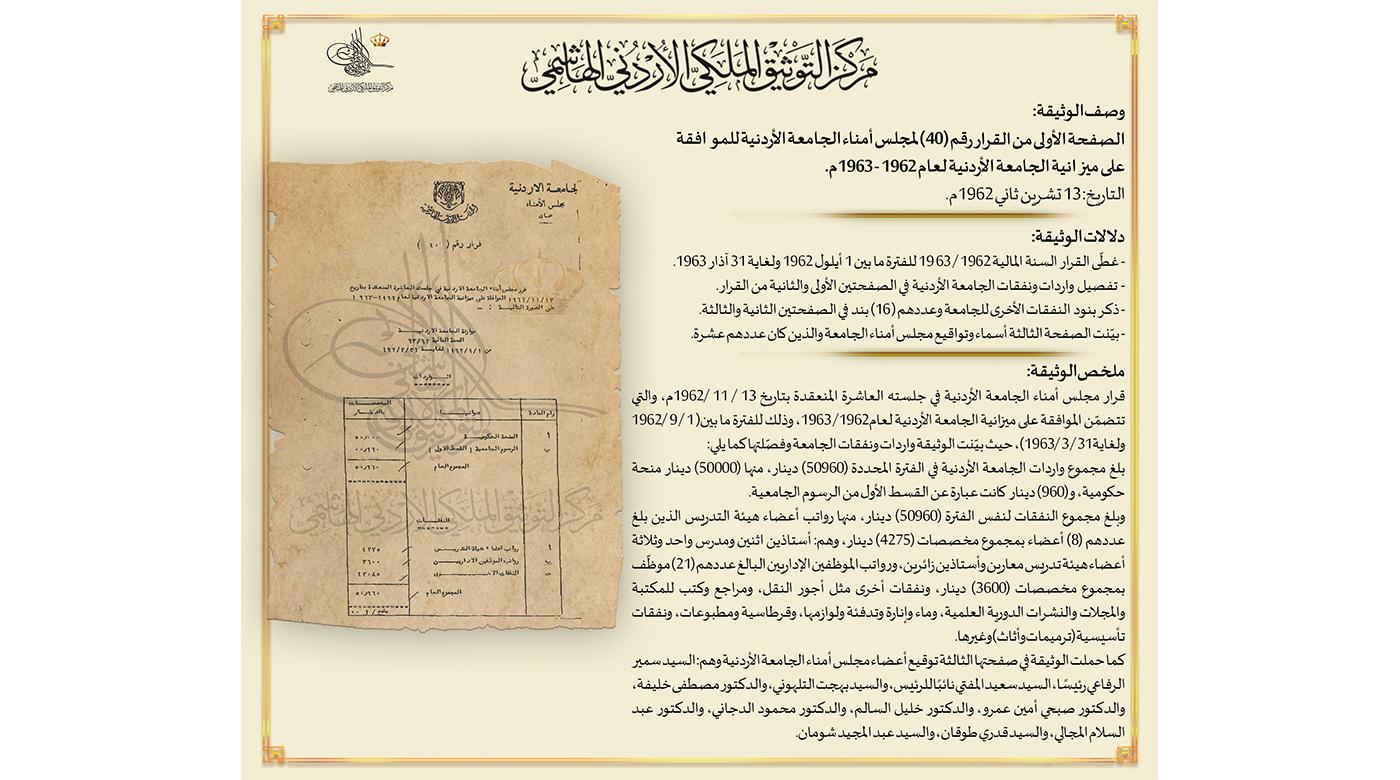 مركز التوثيق الملكي الأردني الهاشمي
مركز التوثيق الملكي الأردني الهاشمي
وصف الوثيقة:
الصفحة الأولى من القرار رقم (40) لمجلس أمناء الجامعة الأردنية للموافقة
على ميزانية الجامعة الأردنية لعام 1962 - 1963م.
التاريخ: 13 تشرين ثاني 1962م.
دلالات الوثيقة:
- غطّى القرار السنة المالية 1962/ 1963 للفترة ما بين 1 أيلول 1962 ولغاية 31 آذار 1963.
- تفصيل واردات ونفقات الجامعة الأردنية في الصفحتين الأولى والثانية من القرار.
- ذكر بنود النفقات الأخرى للجامعة وعددهم (16) بند في الصفحتين الثانية والثالثة.
- بيّنت الصفحة الثالثة أسماء وتواقيع مجلس أمناء الجامعة والذين كان عددهم عشرة.
ملخص الوثيقة:
قرار مجلس أمناء الجامعة الأردنية في جلسته العاشرة المنعقدة بتاريخ 13 / 11 /1962م، والتي
تتضمّن الموافقة على ميزانية الجامعة الأردنية لعام1962/ 1963، وذلك للفترة ما بين( 1 /9/ 1962
ولغاية31 /3 /1963)، حيث بيّنت الوثيقة واردات ونفقات الجامعة وفصّلتها كما يلي:
بلغ مجموع واردات الجامعة الأردنية في الفترة المحددة (50960) دينار، منها (50000) دينار منحة
حكومية، و(960) دينار كانت عبارة عن القسط الأول من الرسوم الجامعية.
وبلغ مجموع النفقات لنفس الفترة (50960) دينار، منها رواتب أعضاء هيئة التدريس الذين بلغ
عددهم (8) أعضاء بمجموع مخصصات (4275) دينار، وهم: أستاذين اثنين ومدرس واحد وثلاثة
أعضاء هيئة تدريس معارين وأستاذين زائرين، ورواتب الموظفين الإداريين البالغ عددهم (21) موظّف
بمجموع مخصصات (3600) دينار، ونفقات أخرى مثل أجور النقل، ومراجع وكتب للمكتبة
والمجلات والنشرات الدورية العلمية، وماء وإنارة وتدفئة ولوازمها، وقرطاسية ومطبوعات، ونفقات
تأسيسية (ترميمات وأثاث) وغيرها.
كما حملت الوثيقة في صفحتها الثالثة توقيع أعضاء مجلس أمناء الجامعة الأردنية وهم: السيد سمير
الرفاعي رئيسًا، السيد سعيد المفتي نائبًا للرئيس، والسيد بهجت التلهوني، والدكتور مصطفى خليفة،
والدكتور صبحي أمين عمرو، والدكتور خليل السالم، والدكتور محمود الدجاني، والدكتور عبد
السلام المجالي، والسيد قدري طوقان، والسيد عبد المجيد شومان.
لجامعة الاردنية
مجلس الأمناء
عمان
قرار رقم (
قرر مجلس أمناء الجامعة الاردنية في جلسته العاشرة المنعقدة بتاريخ
١٩٦٢/١١/١٣ الموافقة على ميزانية الجامعة الاردنية لعام
على الصورة التالية : -
موازنة الجامعة الاردنية
السنة المالية ٦٣/٦٢
الواردات
رقم المادة عنوانها المخصصات بالدينار
أ المنحة الحكومية
ب الرسوم الجامعية ( القسط الاول )
المجموع العام ٥٠٫٩٦٠
النفقات
أ رواتب اعضاء هيئة التدريس ٤٢٧٥
ب رواتب الموظفين الاداريين ٣٦٠٠
ت النفقات الاخرى ٤٣٠٨٥
المجموع العام ٥٠٫٩٦٠
مركز التوثيق الملكي الأردني الهاشمي